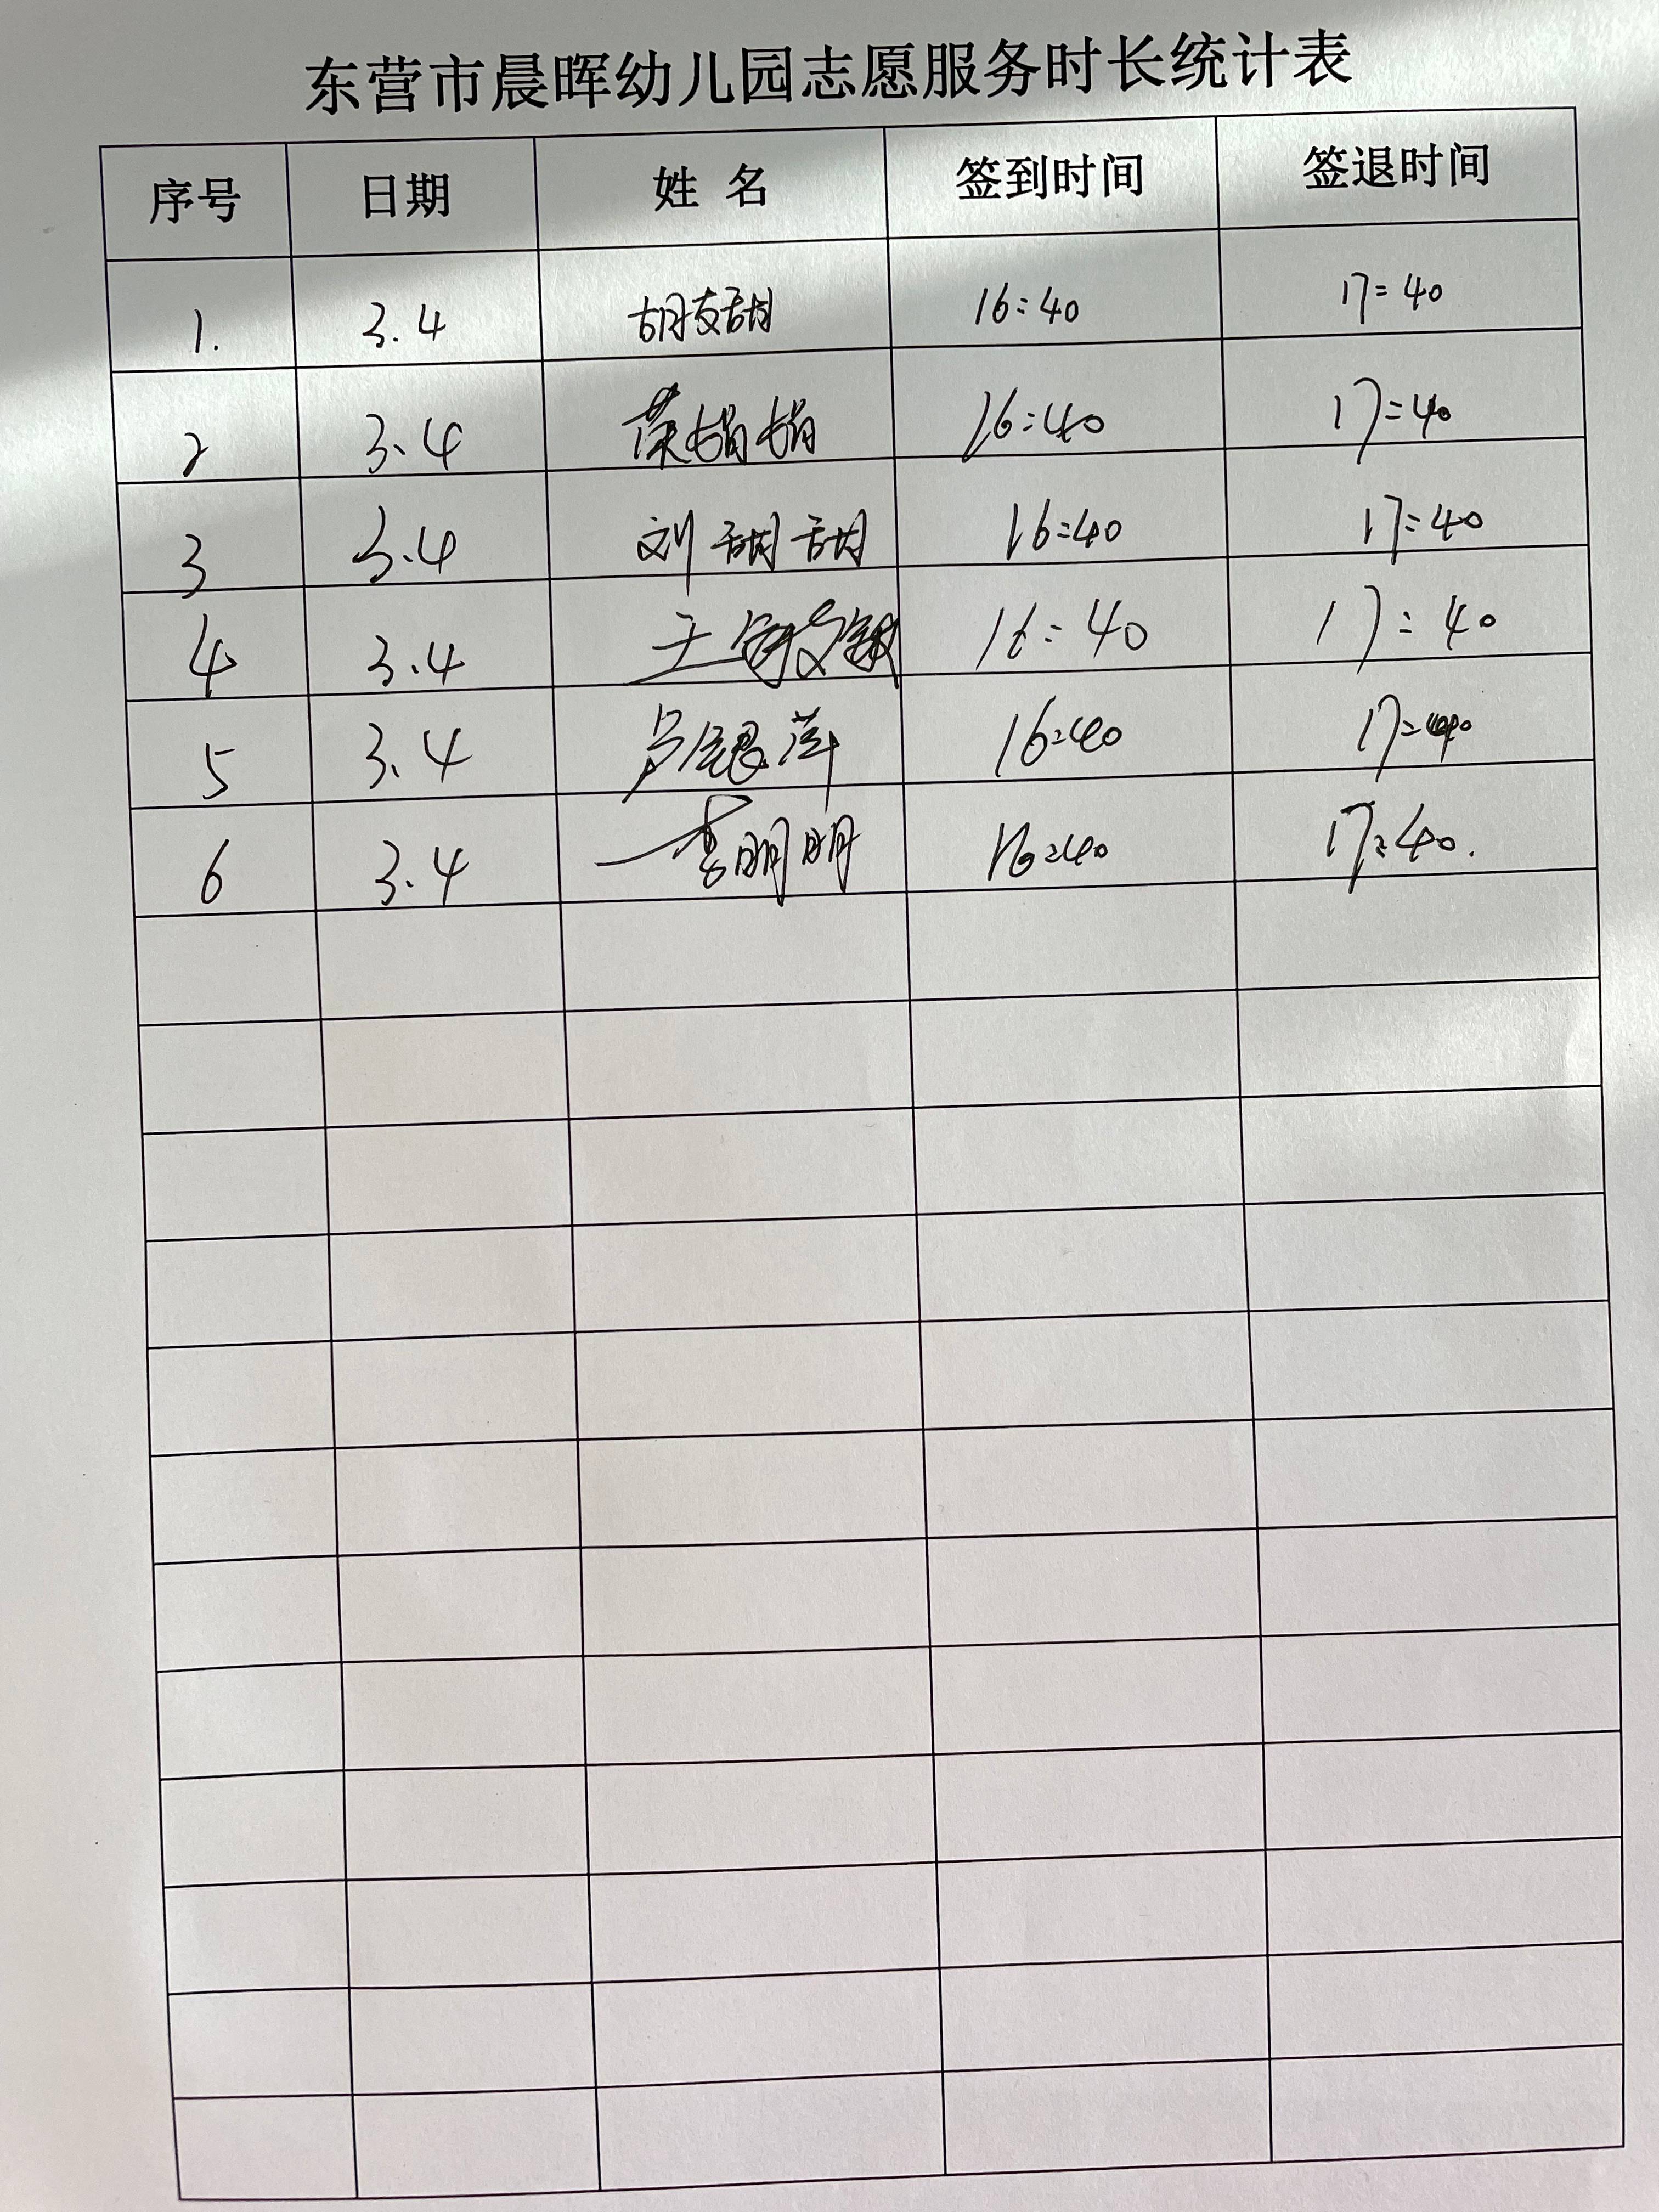 东营市晨晖幼儿园志愿服务时长统计表
序号 日期 姓 名 签到时间 签退时间
1. 3.4 胡甜 16:40 17:40
2 3.4 荣娟娟 16:40 17:40
3 3.4 刘甜甜 16:40 17:40
4 3.4 王 16:40 17:40
5 3.4 卢银萍 16:40 17:40
6 3.4 李明明 16:40 17:40.